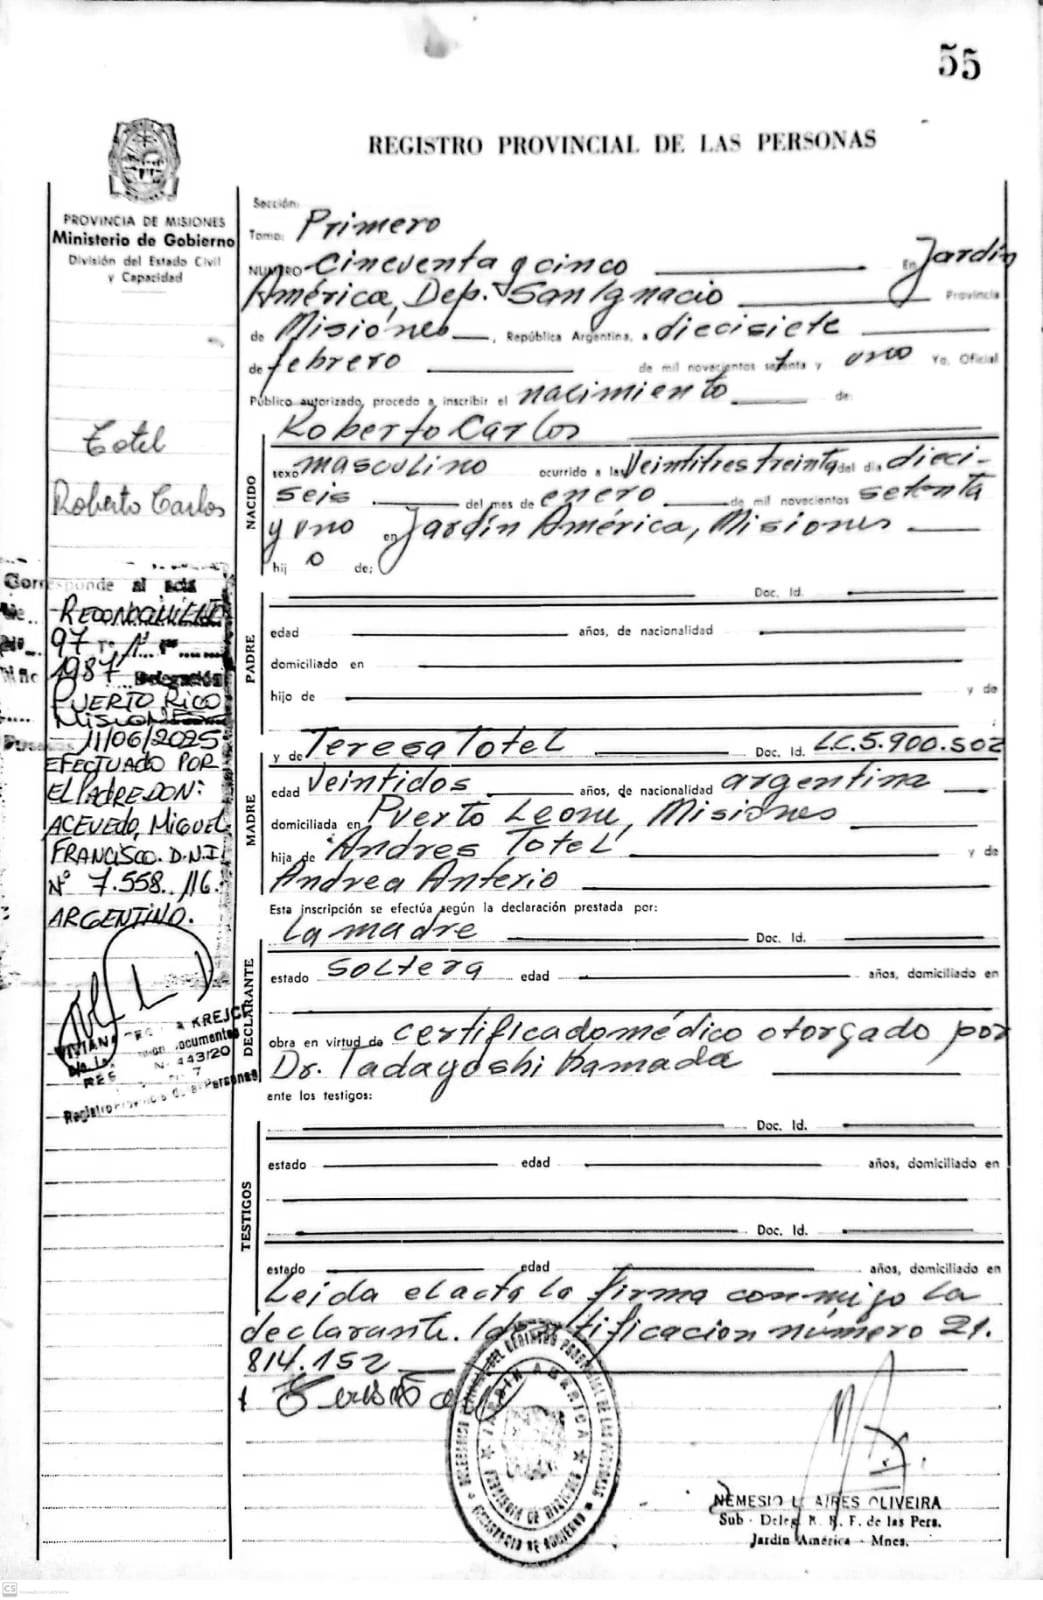 55
REGISTRO PROVINCIAL DE LAS PERSONAS
PROVINCIA DE MISIONES
Ministerio de Gobierno
División del Estado Civil
y Capacidad
Totel
Roberto Carlos
Corresponde al acta
de RECONOCIMIENTO
97 T° 1°
1987 Delegación
PUERTO RICO
MISIONES
11/06/2025
EFECTUADO POR
EL PADRE DON:
ACEVEDO, MIGUEL
FRANCISCO. D.N.I.
N° 7.558.116.
ARGENTINO.
VIVIANA KREJCI
Documentos
RES N. 443/20
Registro Provincial de las Personas
Sección:
Tomo: Primero
NUMERO Cincuenta y cinco En Jardín
América, Dep. San Ignacio Provincia
de Misiones, República Argentina, a diecisiete
de febrero de mil novecientos setenta y uno Yo, Oficial
Público autorizado, procedo a inscribir el nacimiento de
NACIDO
Roberto Carlos
sexo masculino ocurrido a las Veintitres treinta del día dieci-
seis del mes de enero de mil novecientos setenta
y uno en Jardín América, Misiones
hij o de:
PADRE
Doc. Id.
edad años, de nacionalidad
domiciliado en
hijo de y de
MADRE
y de Teresa Totel Doc. Id. L.C. 5.900.502
edad Veintidos años, de nacionalidad argentina
domiciliada en Puerto Leoni, Misiones
hija de Andres Totel y de
Andrea Anterio
Esta inscripción se efectúa según la declaración prestada por:
DECLARANTE
La madre Doc. Id.
estado soltera edad años, domiciliado en
obra en virtud de certificado médico otorgado por
Dr. Tadayoshi Kamada
ante los testigos:
TESTIGOS
Doc. Id.
estado edad años, domiciliado en
Doc. Id.
estado edad años, domiciliado en
Leida el acta la firma conmigo la
declarante. Identificacion número 21.
814.152
JARDIN AMERICA
PROVINCIA DE MISIONES
MINISTERIO DE GOBIERNO
NEMESIO AIRES OLIVEIRA
Sub - Deleg. R. N. F. de las Pers.
Jardín América - Mnes.
CS